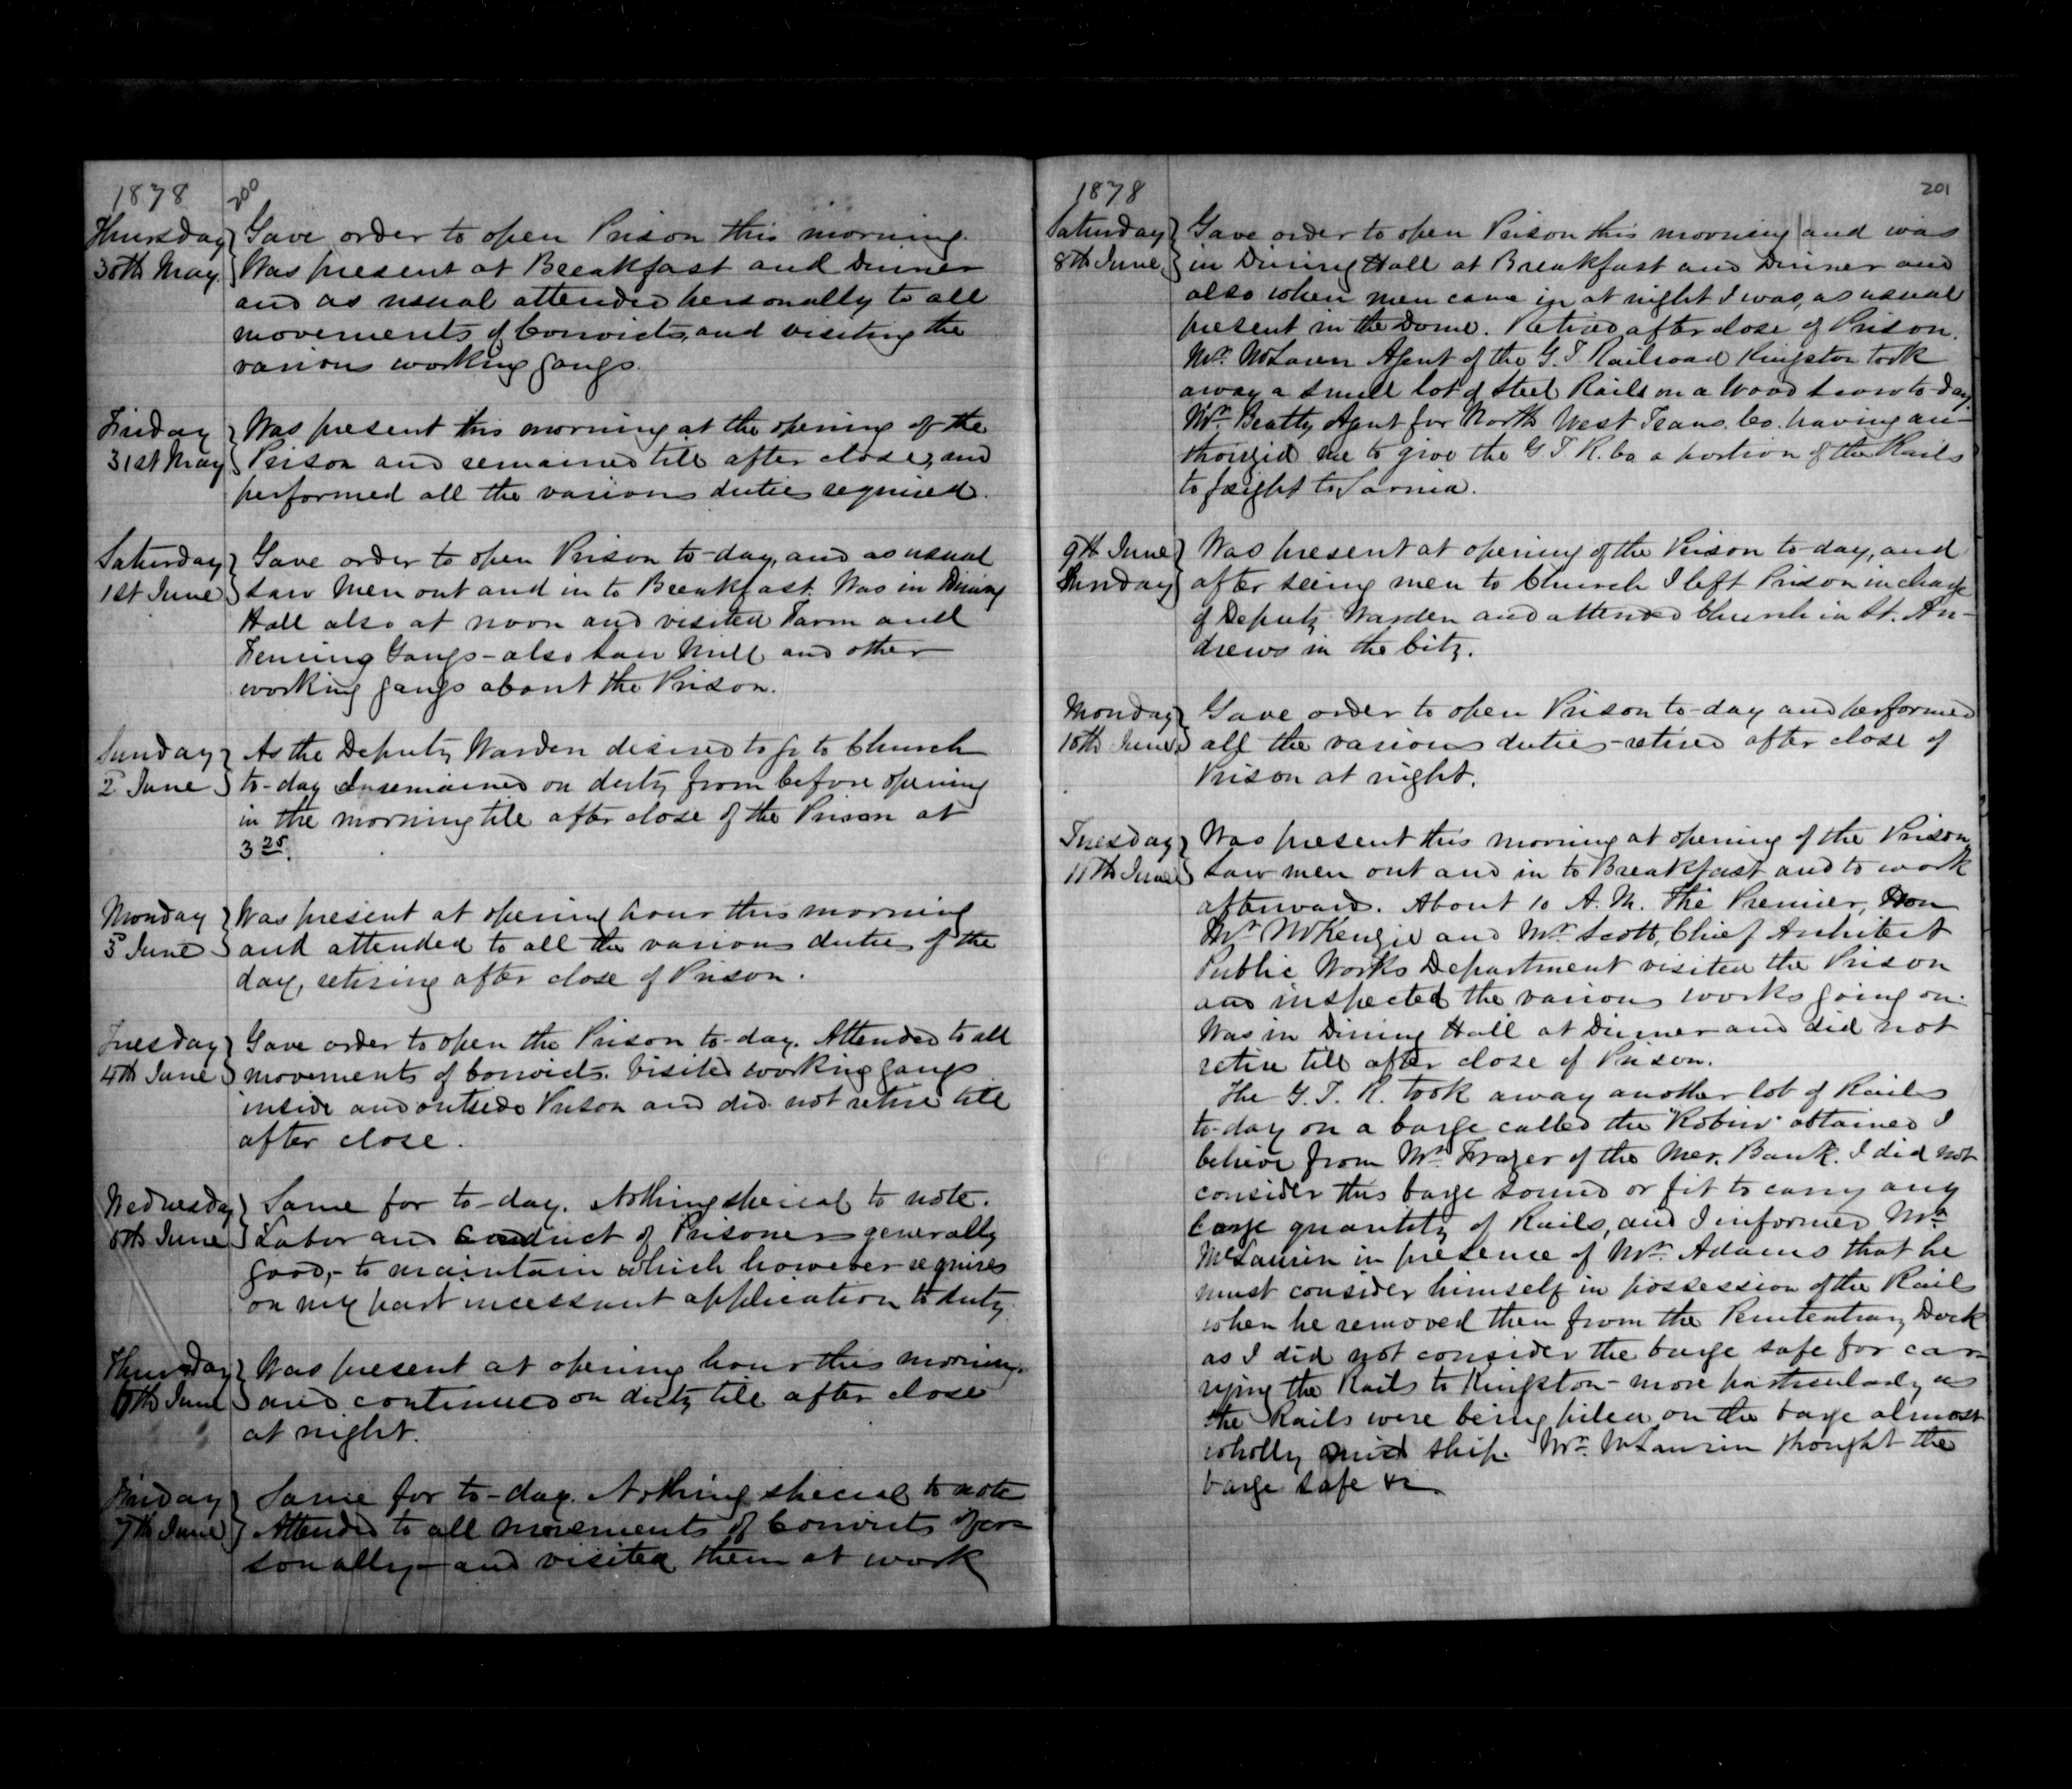 1878
200
Thursday
30th May
Gave order to open Prison this morning.
Was present at Breakfast and Dinner
and as usual attended personally to all
movements of Convicts, and visiting the
various working gangs.
Friday
31st May
Was present this morning at the opening of the
Prison and remained till after close, and
performed all the various duties required.
Saturday
1st June
Gave order to open Prison to-day, and as usual
saw men out and in to Breakfast. Was in Dining
Hall also at noon and visited Farm and
Fencing Gangs - also Saw Mill and other
working gangs about the Prison.
Sunday
2d June
As the Deputy Warden desired to go to Church
to-day I remained on duty from before opening
in the morning till after close of the Prison at
3 25.
Monday
3d June
Was present at opening hour this morning
and attended to all the various duties of the
day, retiring after close of Prison.
Tuesday
4th June
Gave order to open the Prison to-day. Attended to all
movements of Convicts. Visited working gangs
inside and outside Prison and did not retire till
after close.
Wednesday
5th June
Same for to-day. Nothing special to note.
Labor and Conduct of Prisoners generally
good, - to maintain which however requires
on my part incessant application to duty.
Thursday
6th June
Was present at opening hour this morning.
and continued on duty till after close
at night.
Friday
7th June
Same for to-day. Nothing special to note
Attended to all movements of Convicts per=
sonally - and visited them at work
1878
201
Saturday
8th June
Gave order to open Prison this morning and was
in Dining Hall at Breakfast and Dinner and
also when men came in at night I was, as usual
present in the Dome. Retired after close of Prison.
Mr. McLaren Agent of the G. T. Railroad Kingston took
away a small lot of Steel Rails on a Wood Scow to-day.
Mr. Beatty Agent for North West Trans. Co. having au-
thorized me to give the G. T. R. Co a portion of the Rails
to freight to Sarnia.
9th June
Sunday
Was present at opening of the Prison to day, and
after seeing men to Church I left Prison in charge
of Deputy Warden and attended Church in St. An-
drews in the City.
Monday
10th June
Gave order to open Prison to-day and performed
all the various duties - retired after close of
Prison at night.
Tuesday
11th June
Was present this morning at opening of the Prison,
saw men out and in to Breakfast and to work
afterward. About 10 A. M. The Premier, Hon
Mr. McKenzie and Mr. Scott, Chief Architect
Public Works Department visited the Prison
and inspected the various works going on.
Was in Dining Hall at Dinner and did not
retire till after close of Prison.
The G. T. R. took away another lot of Rails
to-day on a barge called the "Robin" obtained I
believe from Mr. Frazer of the Mer. Bank. I did not
consider this barge sound or fit to carry any
large quantity of Rails, and I informed Mr.
McLaurin in presence of Mr. Adams that he
must consider himself in possession of the Rails
when he removed them from the Penitentiary Dock
as I did not consider the barge safe for car=
rying the Rails to Kingston - more particularly as
the Rails were being piled on the barge almost
wholly mid ship. Mr. McLaurin thought the
barge safe &c